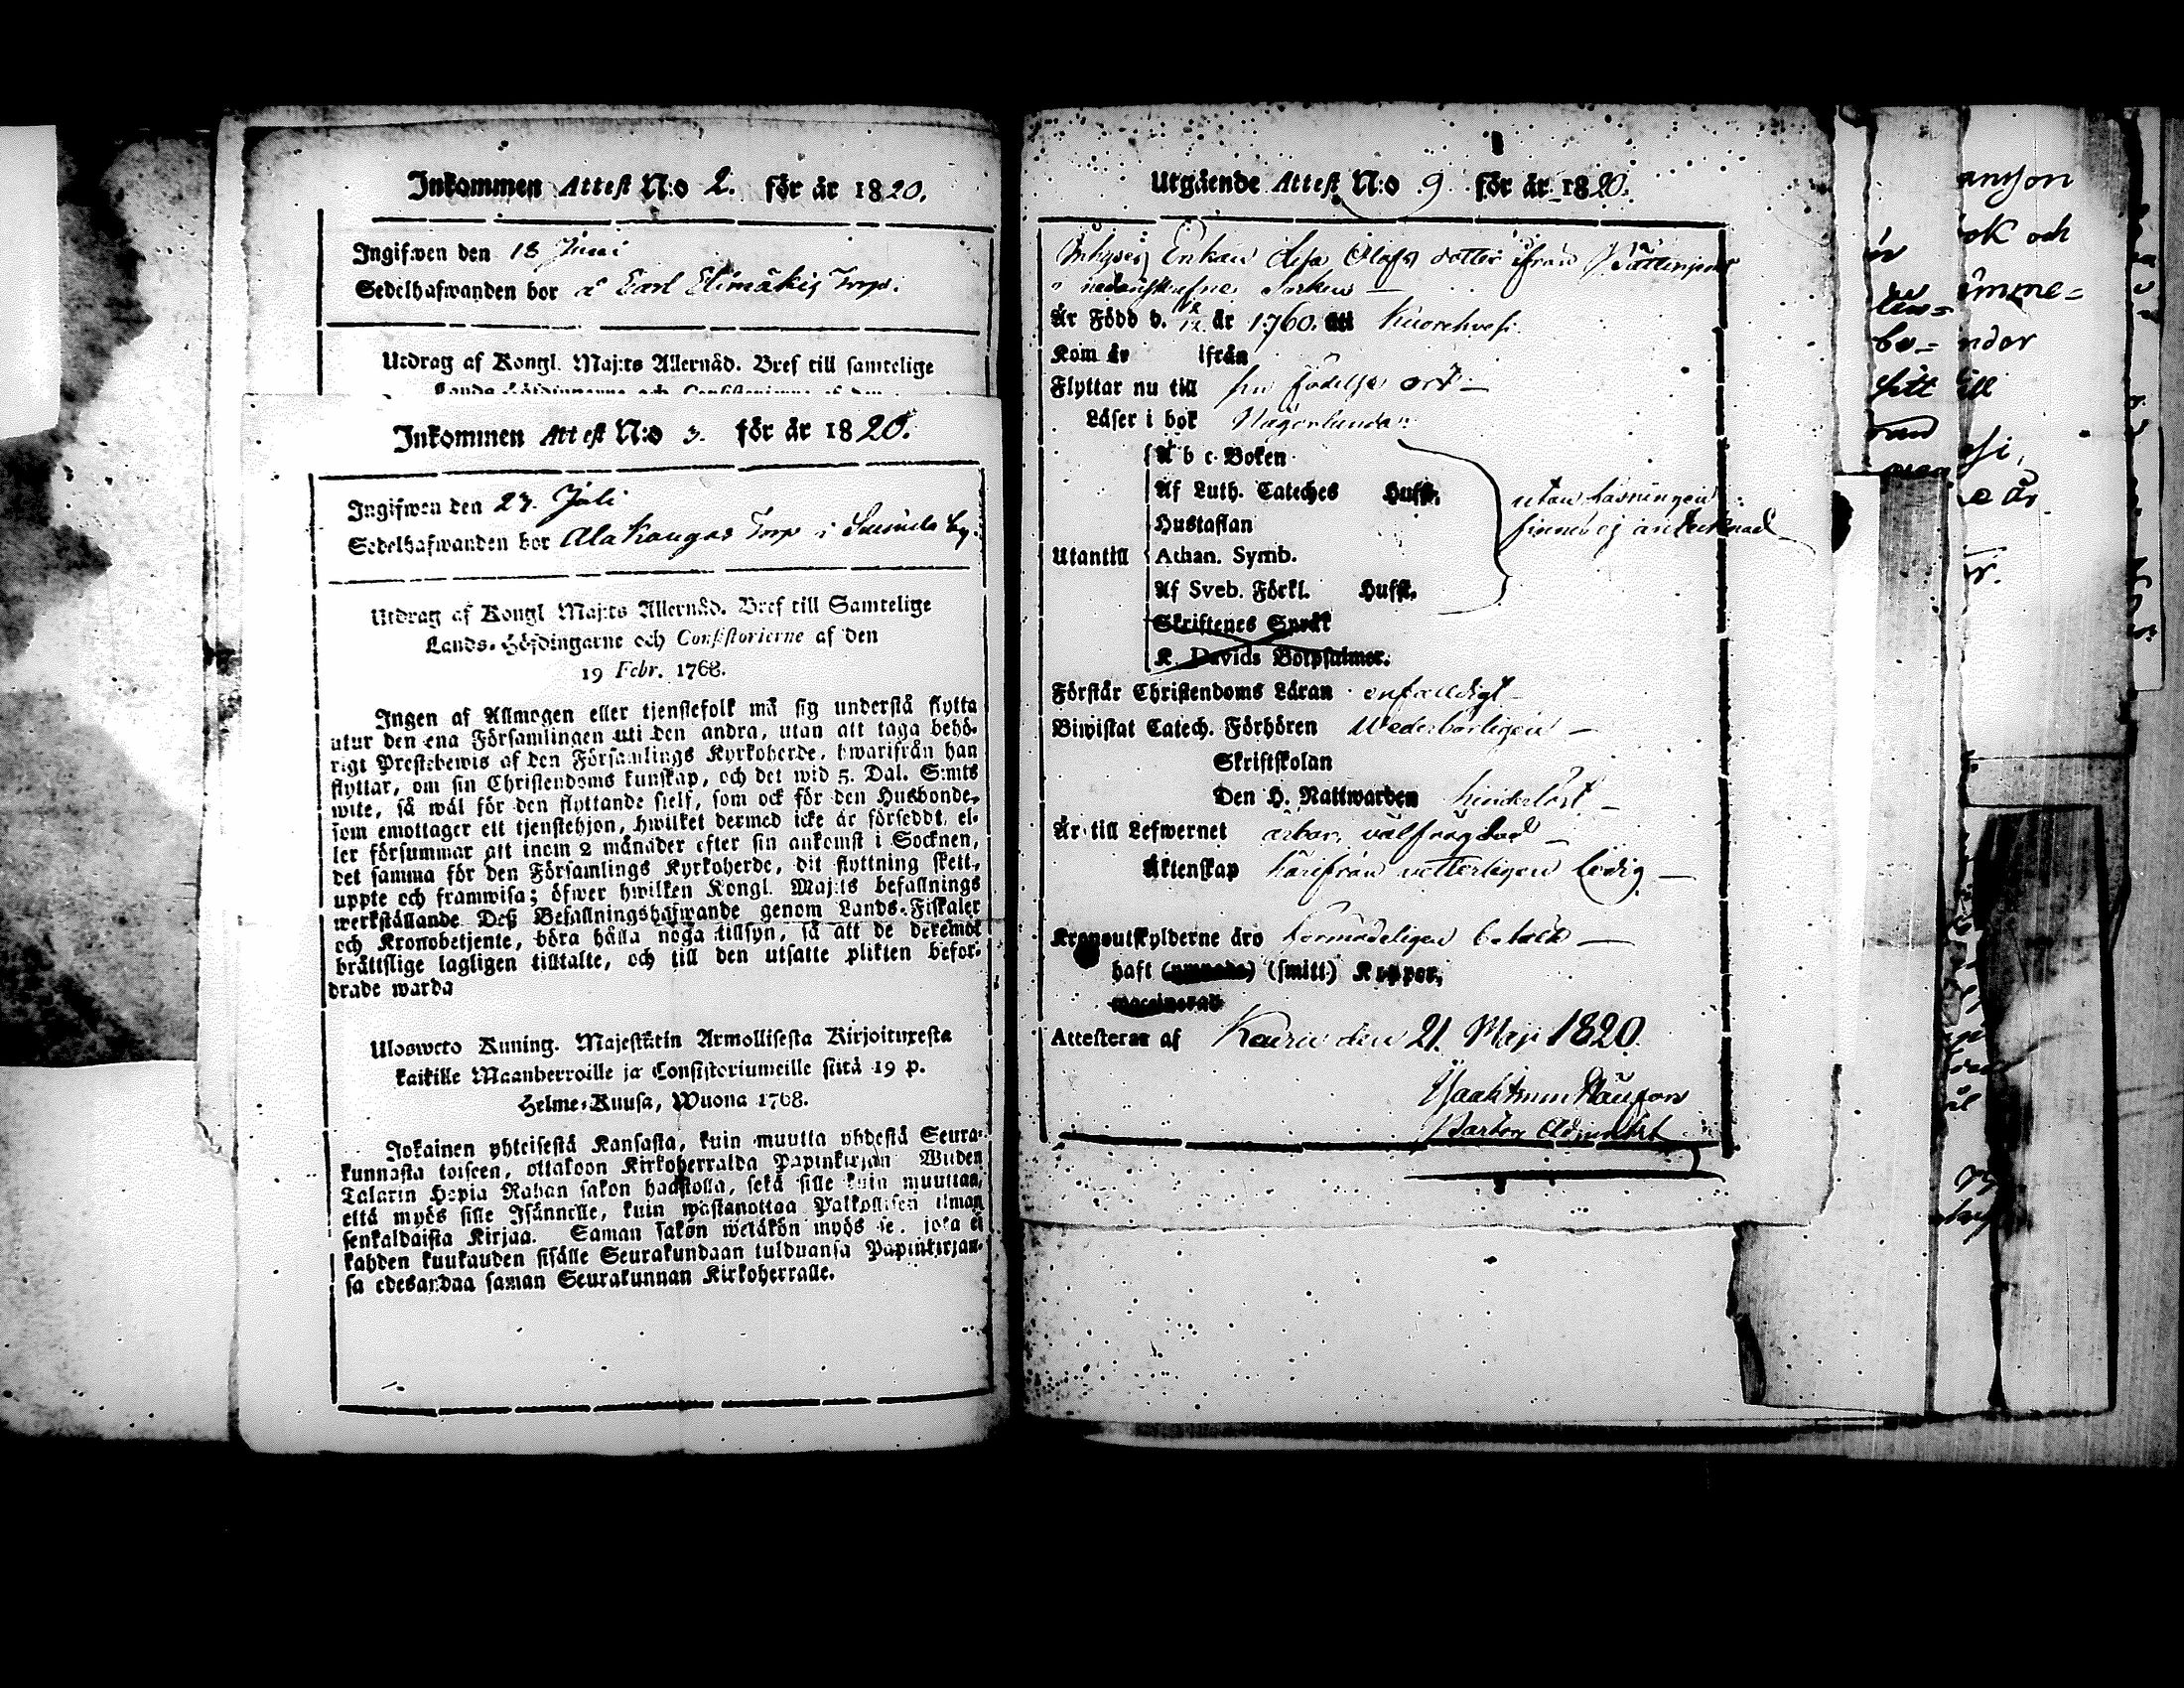 Inkommen Attest N:o 2. för år 1820.
Ingifwen den 18 Juni
Sedelhafwanden bor å Carl Elimäkis Torp.
Utdrag af Kongl. Maj:ts Allernåd. Bref till samtelige
Inkommen Attest N:o 3. för år 1820.
Ingifwen den 23. Juli
Sedelhafwanden bor Ala Kangas Torp i
Utdrag af Kongl Maj:ts Allernåd. Bref till Samtelige
Lands-Höfdingarne och Consistorierne af den
19 Febr. 1768.
Ingen af Allmogen eller tjenstefolk må sig understå flytta
utur den ena Församlingen uti den andra, utan att taga behö-
rigt Prestebewis af den Församlings Kyrkoherde, hwarifrån han
flyttar, om sin Christendoms kunskap, och det wid 5. Dal. S:mts
wite, så wäl för den flyttande sielf, som ock för den Husbonde,
som emottager ett tjenstehjon, hwilket dermed icke är försedt, el-
ler försummar att inom 2 månader efter sin ankomst i Socknen,
det samma för den Församlings Kyrkoherde, dit flyttning skett,
uppte och framwisa; öfwer hwilken Kongl. Maj:ts befallnings
werkställande Deß Befallningshafwande genom Lands-Fiskaler
och Kronobetjente, böra hålla noga tillsyn, så att de deremot
bråttslige lagligen tilltalte, och till den utsatte plikten befor-
drade warda
Ulosweto Kuning. Majestätin Armollisesta Kirjoituxesta
kaikille Maanherroille ja Consistoriumeille siitä 19 p.
Helme-Kuusa, Wuona 1768.
Jokainen yhteisestä Kansasta, kuin muutta yhdestä Seura-
kunnasta toiseen, ottakoon Kirkoherralda Papinkirjan Wiiden
Talarin Hopia Rahan sakon haastolla, sekä sille kuin muuttaa,
että myös sille Isännelle, kuin wastanottaa Palkollisen ilman
senkaldaista Kirjaa. Saman sakon wetäkön myös se, joka ei
kahden kuukauden sisälle Seurakundaan tulduansa Papinkirjan-
sa edesandaa saman Seurakunnan Kirkoherralle.
Utgående Attest N:o 9 för år 1820.
Inhyses Enkan Lisa Olofs dotter ifrån
i nedanskrefne Socken
Är Född d. 12/12 år 1760. uti Kuorehvesi
Kom år ifrån
Flyttar nu till sin födelse ort
Läser i bok Någorlunda
A b c Boken
Af Luth. Cateches Hufst.
Hustaflan
Utantill Athan. Symb.
Af Sveb. Förkl. Hufst.
utan läsningen
finnes ej antecknad
Skriftenes Språk
K. Davids Botpsalmer.
Förstår Christendoms Läran enfaldigt
Biwistat Catech. Förhören Wederbörligen
Skriftskolan
Den H. Nattwarden hinderlöst
Är till Lefwernet ärbar, välfrägdad
Äktenskap härifrån vetterligen ledig
Kronoutskylderne äro förmodeligen betalte
haft (smitt) Kopper,
Attesteras af Keuru den 21. Maji 1820.
Pastor Adjunkt